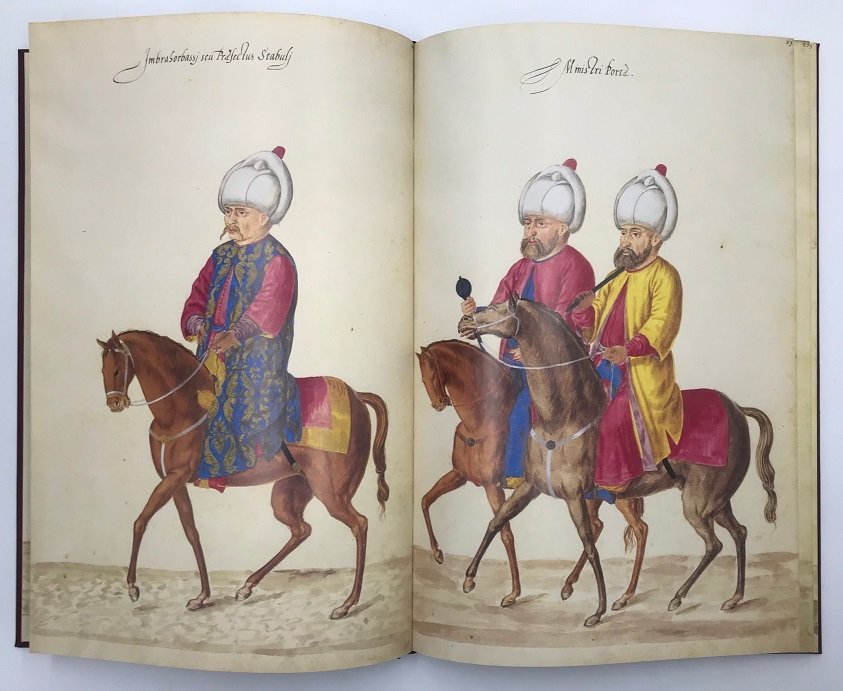 Imbrahorbassj seu Præfectus Stabulj
Ministri Portæ.